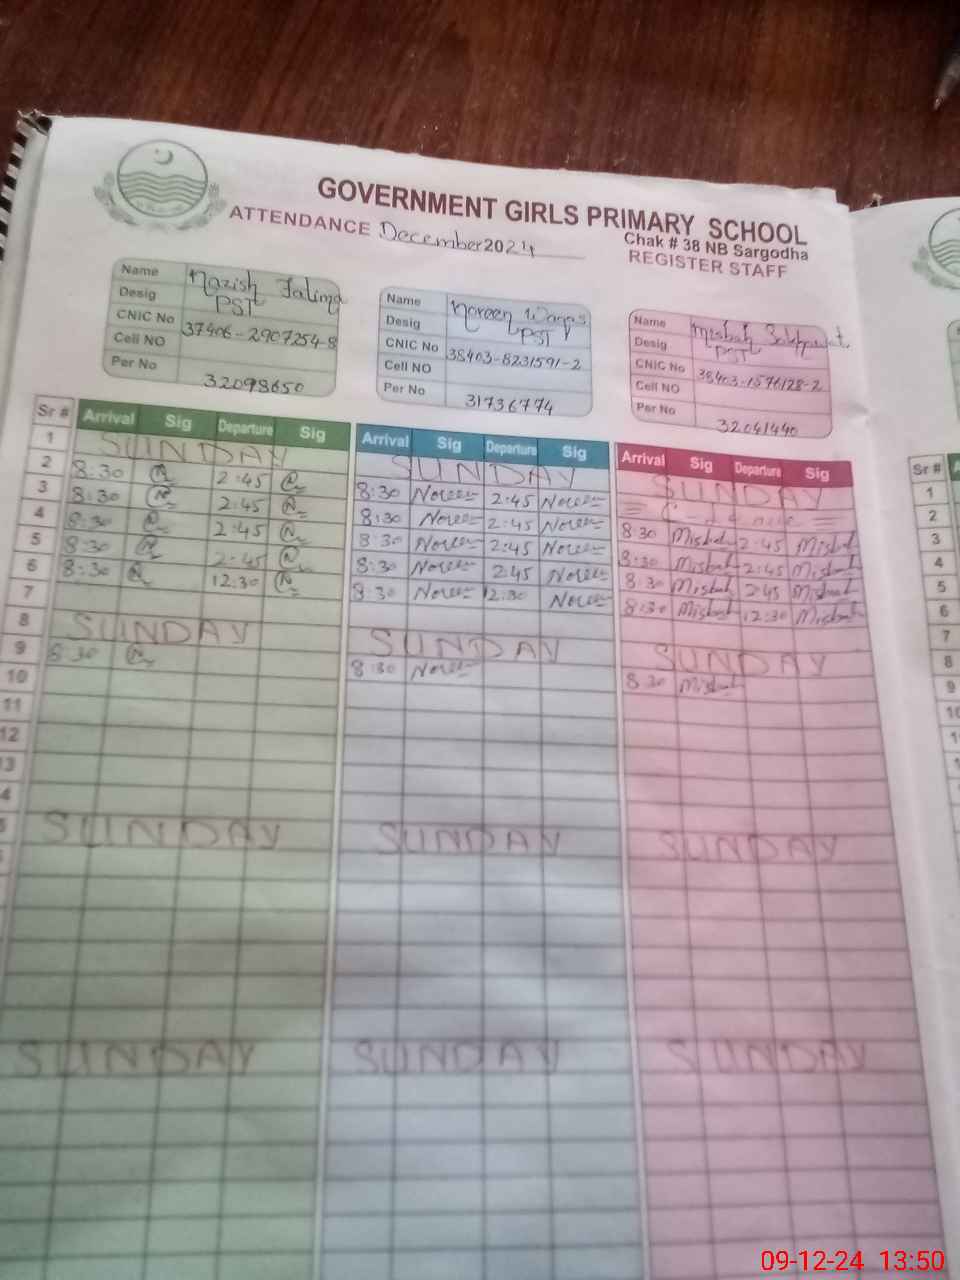 GOVERNMENT GIRLS PRIMARY SCHOOL
Chak # 38 NB Sargodha
ATTENDANCE December 2024 REGISTER STAFF
Name Nazish Fatima
Desig PST
CNIC No 37406-2907254-8
Cell NO
Per No 32098650
Name Noreen Waqas
Desig PST
CNIC No 38403-8231591-2
Cell NO
Per No 31736774
Name Misbah
Desig PST
CNIC No 38403-1576128-2
Cell NO
Per No 32041440
Sr # Arrival Sig Departure Sig Arrival Sig Departure Sig Arrival Sig Departure Sig Sr #
1 SUNDAY SUNDAY SUNDAY 1
2 8:30 2:45 8:30 Noreen 2:45 Noreen 2
3 8:30 2:45 8:30 Noreen 2:45 Noreen 8:30 Misbah 2:45 Misbah 3
4 8:30 2:45 8:30 Noreen 2:45 Noreen 8:30 Misbah 2:45 Misbah 4
5 8:30 2:45 8:30 Noreen 2:45 Noreen 8:30 Misbah 2:45 Misbah 5
6 8:30 12:30 8:30 Noreen 12:30 Noreen 8:30 Misbah 12:30 Misbah 6
7 7
8 SUNDAY SUNDAY SUNDAY 8
9 8:30 8:30 Noreen 8:30 Misbah 9
10 10
11
12
13
SUNDAY SUNDAY SUNDAY
SUNDAY SUNDAY SUNDAY
09-12-24 13:50